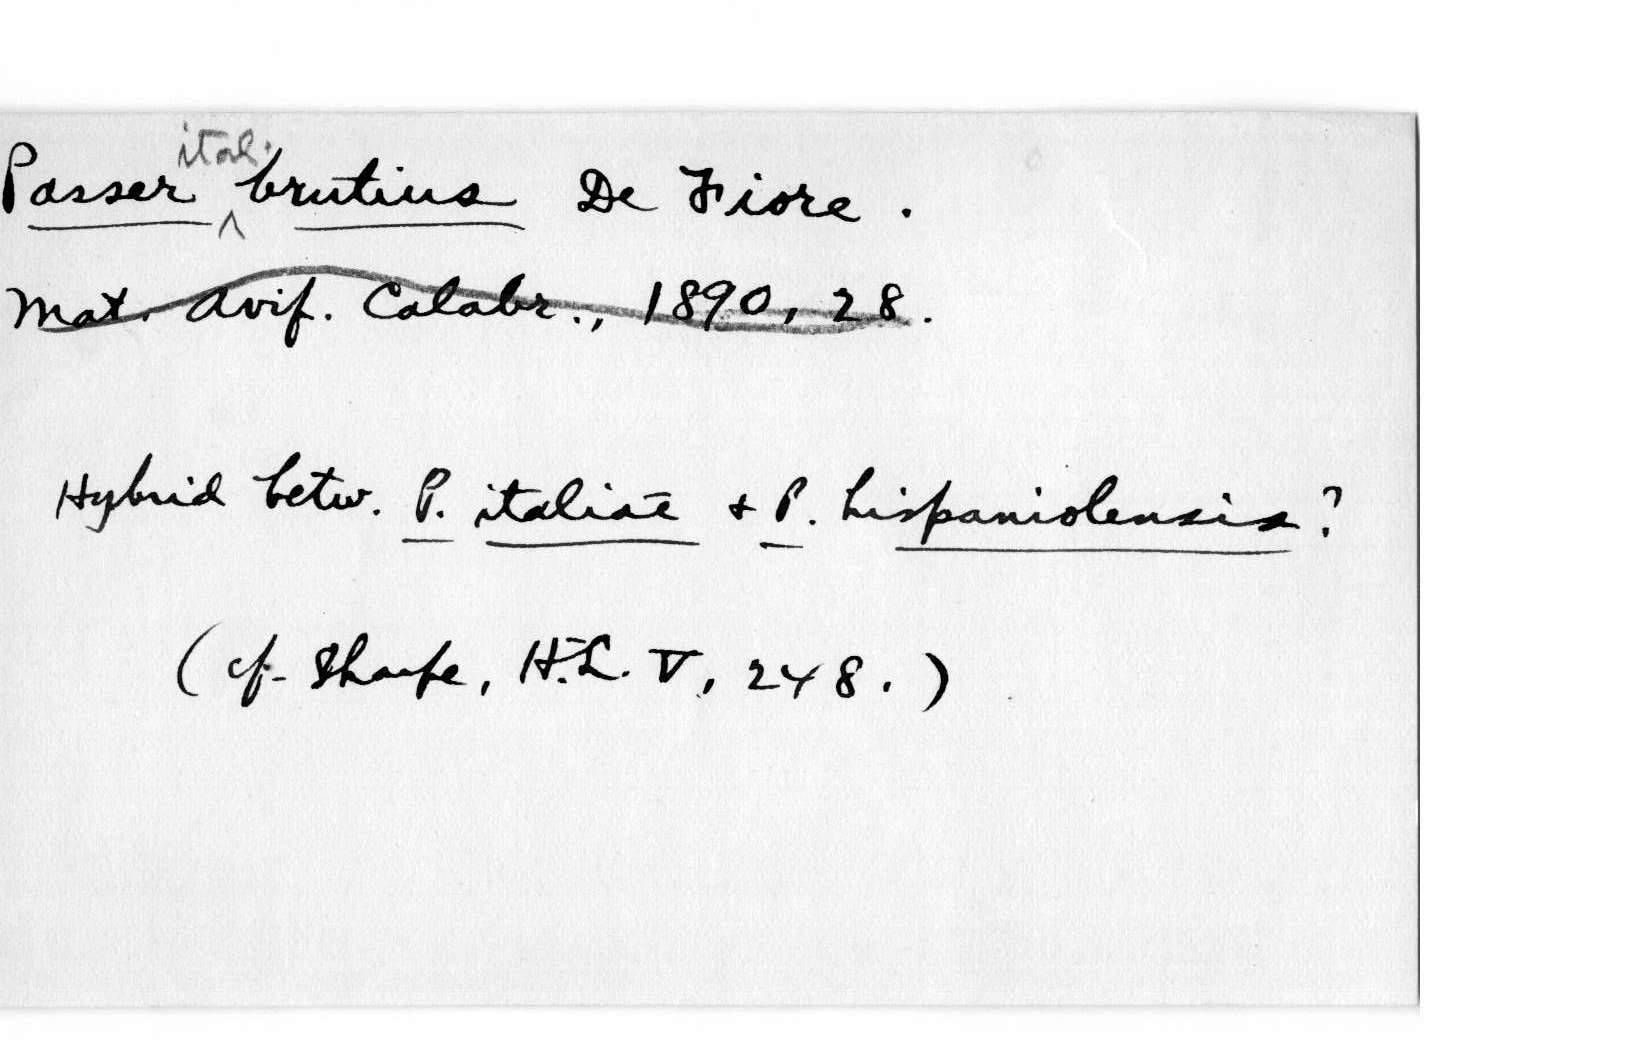 Passer ital. brutius De Fiore.
Mat. Avif. Calabr., 1890, 28.
Hybrid betw. P. italiae + P. hispaniolensis?
(cf. Sharpe, H.L. V, 248.)